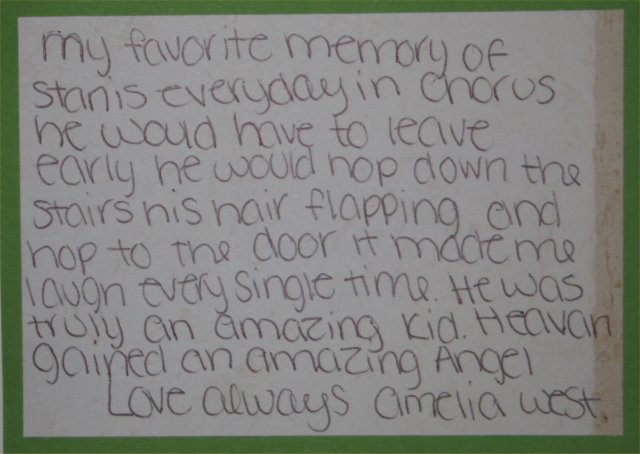 my favorite memory of
stan is everyday in chorus
he would have to leave
early he would hop down the
stairs his hair flapping and
hop to the door it made me
laugh every single time. He was
truly an amazing kid. Heavan
gained an amazing Angel
Love always amelia west.